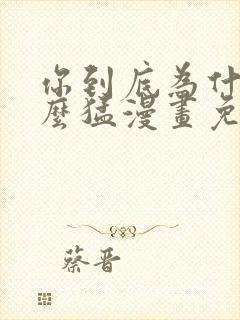 你到底為什
麼猛漫畫免
蔡晋